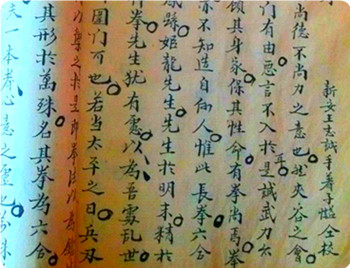 新安王志誠手著子愷全校
尚德不尚力之意也然夾谷之會
門有由惡言不入於耳是誠武力
其身家保其性命有拳尚焉拳
亦不知造自何人惟此長拳六合
姬龍先生先生於明末精於
拳先生猶有慮以為吾處亂世
門可也若當太平之日兵刃
於是即拳法以
其形於萬殊名其拳為六合
夫一本拳心意之靈也萬殊